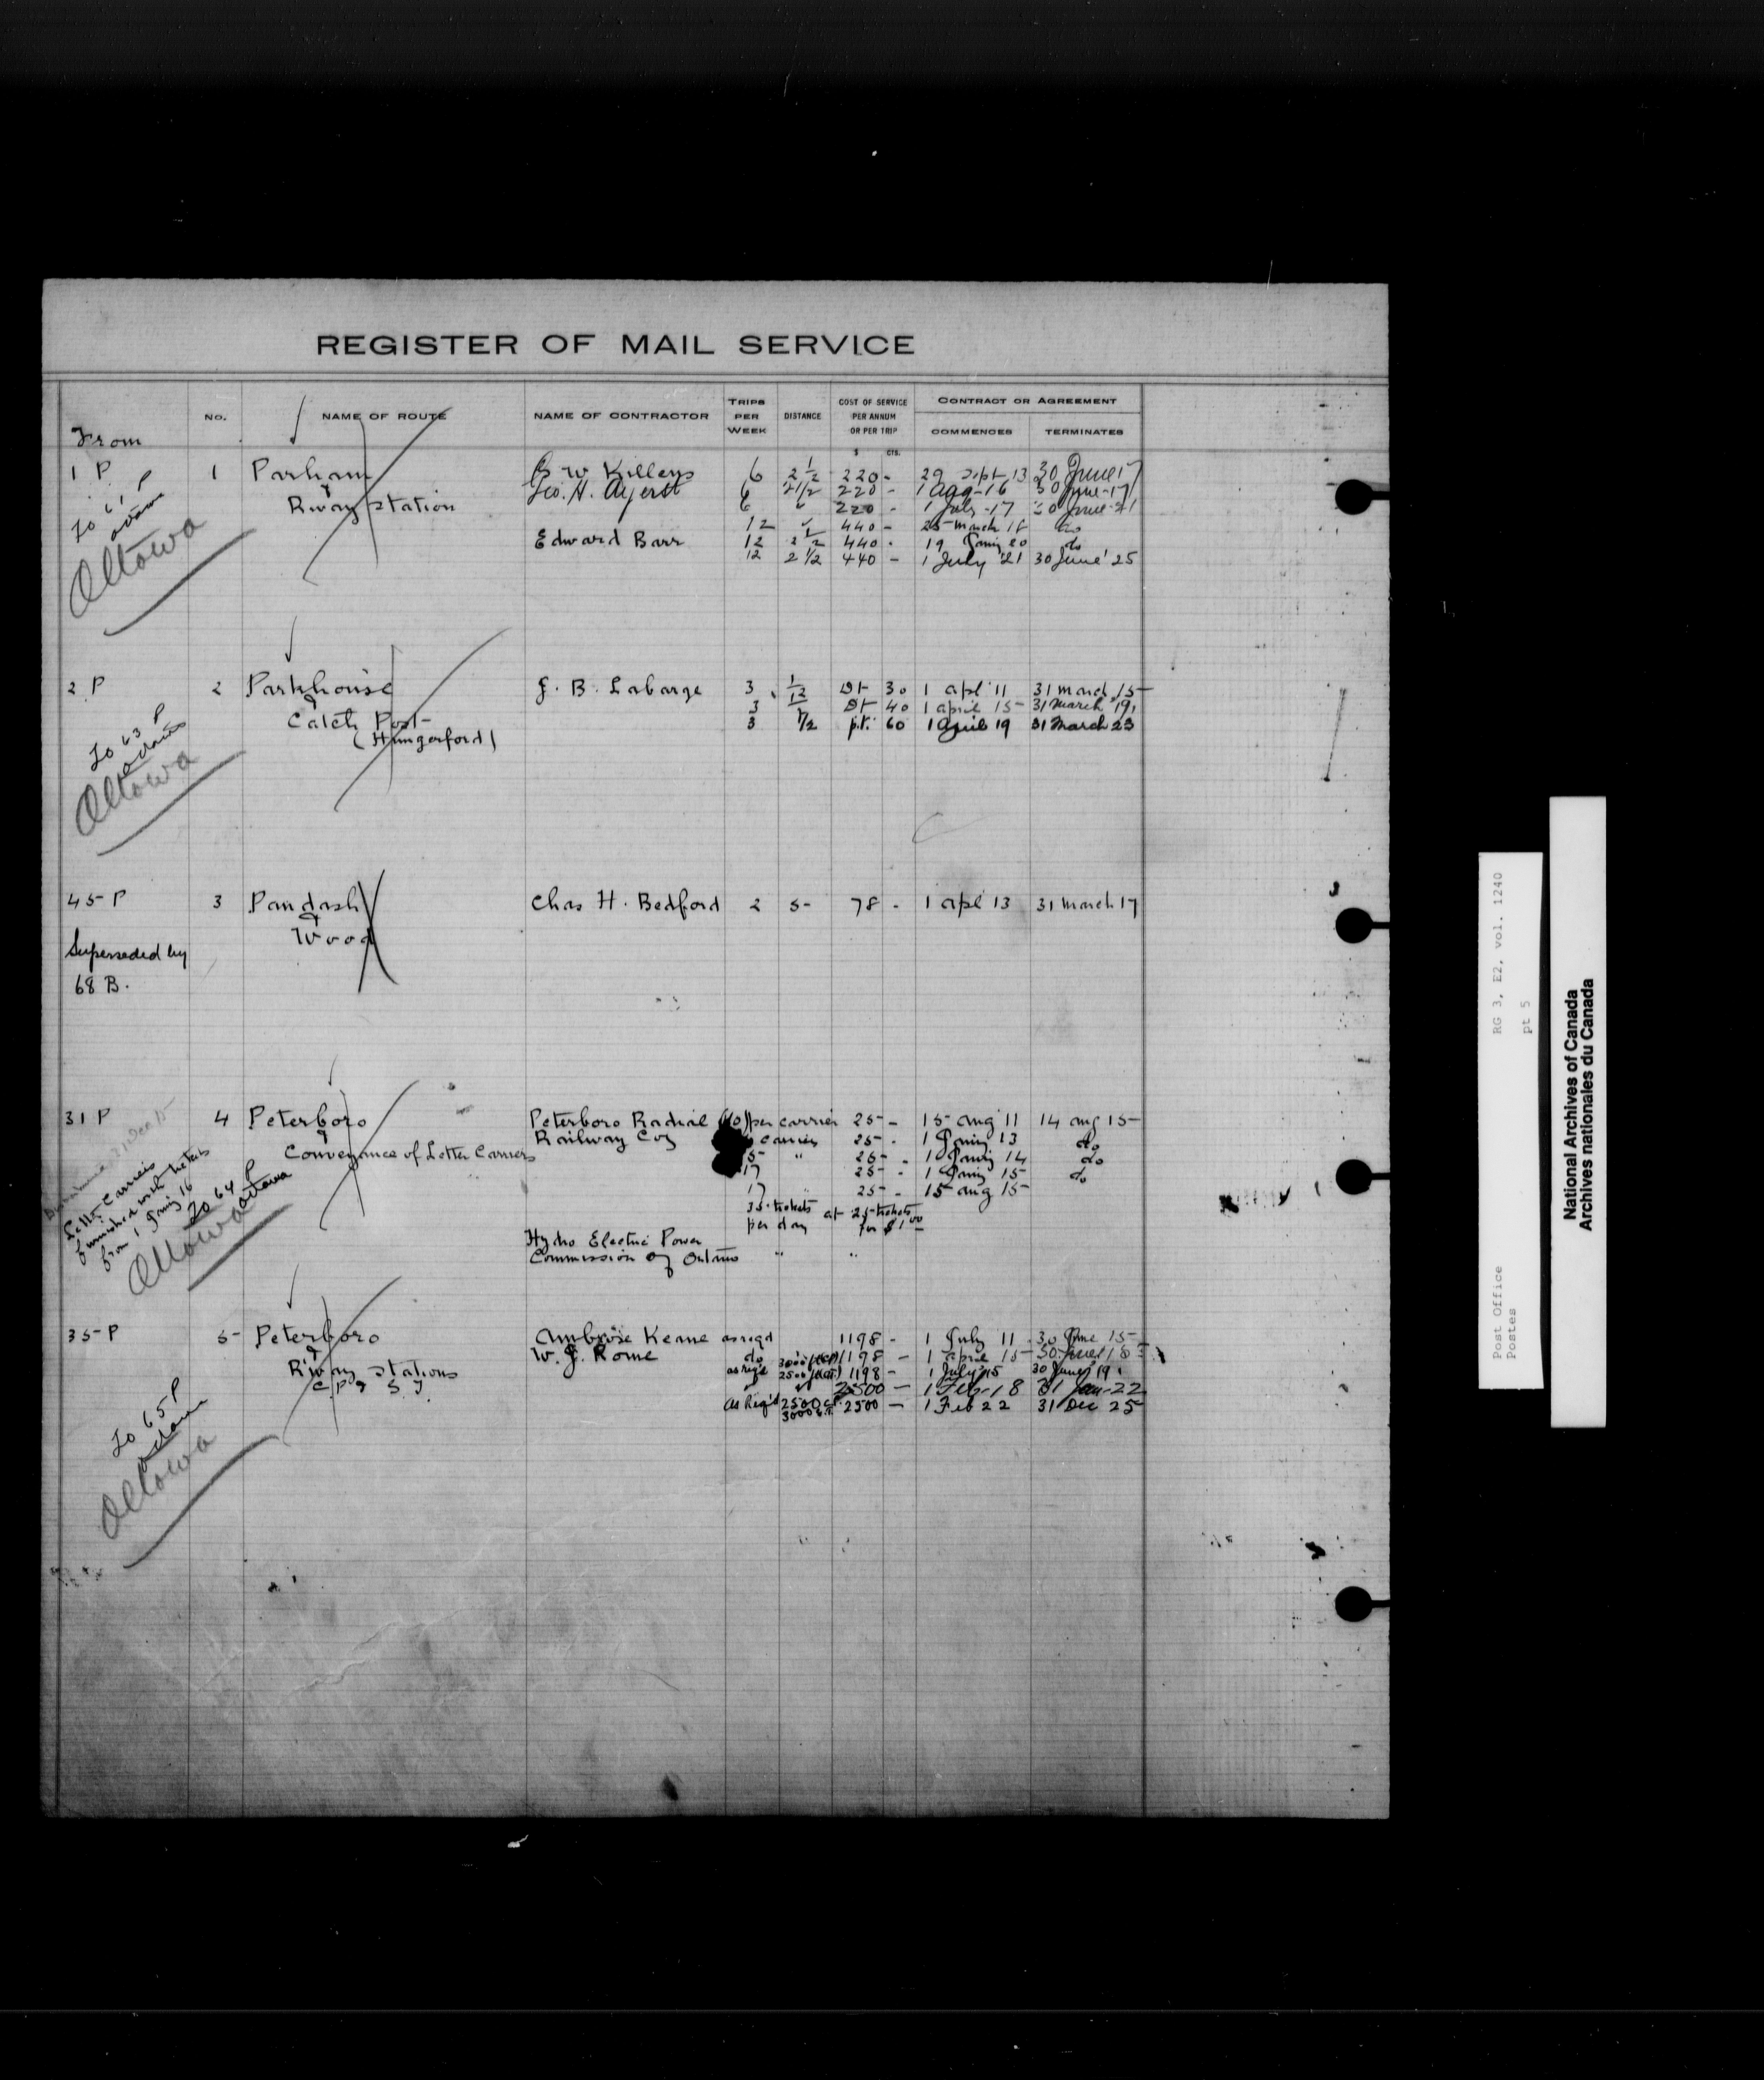 REGISTER OF MAIL SERVICE
From
No.
NAME OF ROUTE
NAME OF CONTRACTOR
TRIPS PER WEEK
DISTANCE
COST OF SERVICE PER ANNUM OR PER TRIP
$ CTS.
CONTRACT OR AGREEMENT
COMMENCES
TERMINATES
1 P 1 Parham
&
Rway Station
To 61 P
Ottawa
Ottawa
B W Killens 6 2 1/2 220 - 29 Sept 13 30 June 17
Geo. H. 6 2 1/2 220 - 1 Aug-16 30 June-17
6 " 220 - 1 July-17 30 June-21
12 440 - 25 March 18 do
Edward Barr 12 2 1/2 440 - 19 Jany 20 do
12 2 1/2 440 - 1 July '21 30 June '25
2 P 2 Parkhouse
&
Catch Post
(Hungerford)
To 63 P
Ottawa
Ottawa
J. B. Labarge 3 1/12 30 1 apl '11 31 March 15
3 40 1 april 15 31 March 19
3 1/2 p.t. 60 1 April 19 31 March 23
45 P 3 Paudash
&
Wood
Superseded by
68 B.
Chas H. Bedford 2 5 78 - 1 apl 13 31 March 17
31 P 4 Peterboro
&
Conveyance of Letter Carriers
Letter Carriers
furnished with tickets
from 1 Jany 16
To 64 P
Ottawa
Ottawa
Peterboro Radial (10) per carrier 25 - 15 Aug 11 14 Aug 15
Railway Coy carrier 25 - 1 Jany 13 do
" 25 - 1 Jany 14 do
17 25 - 1 Jany 15 do
17 " 25 - 15 Aug 15
35 tickets at 25 tickets
per day for $1.00
Hydro Electric Power
Commission of Ontario " "
35 P 5 Peterboro
&
R'way Stations
C.P. & G.T.
To 65 P
Ottawa
Ottawa
Ambrose Keane as reqd 1198 - 1 July 11 30 June 15
W. J. Rome do 3000 1198 - 1 April 15 30 June
as req'd 2500 1198 - 1 July '15 30 June 19
2500 - 1 Feb-18 31 Jan-22
As Req'd 2500 C.P. 2500 - 1 Feb 22 31 Dec 25
3000 G.T.
Post Office RG 3, E2, vol. 1240
Postes pt 5
National Archives of Canada
Archives nationales du Canada